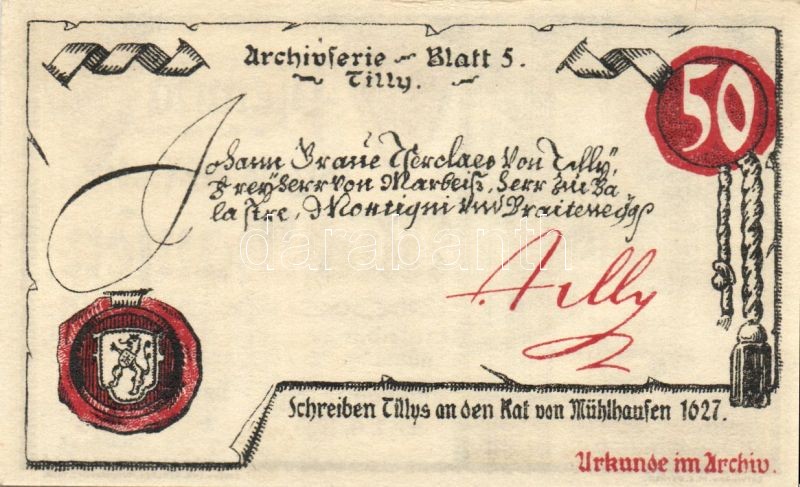 Archivserie – Blatt 5.
~ Tilly. ~
50
Johann Graue Tserclaes von Tilly,
Freyherr von Marbeiß, herr zu Ba
lastre, Montigni und Braitenegg
Tilly
Schreiben Tillys an den Rat von Mühlhausen 1627.
Urkunde im Archiv.
darabanth